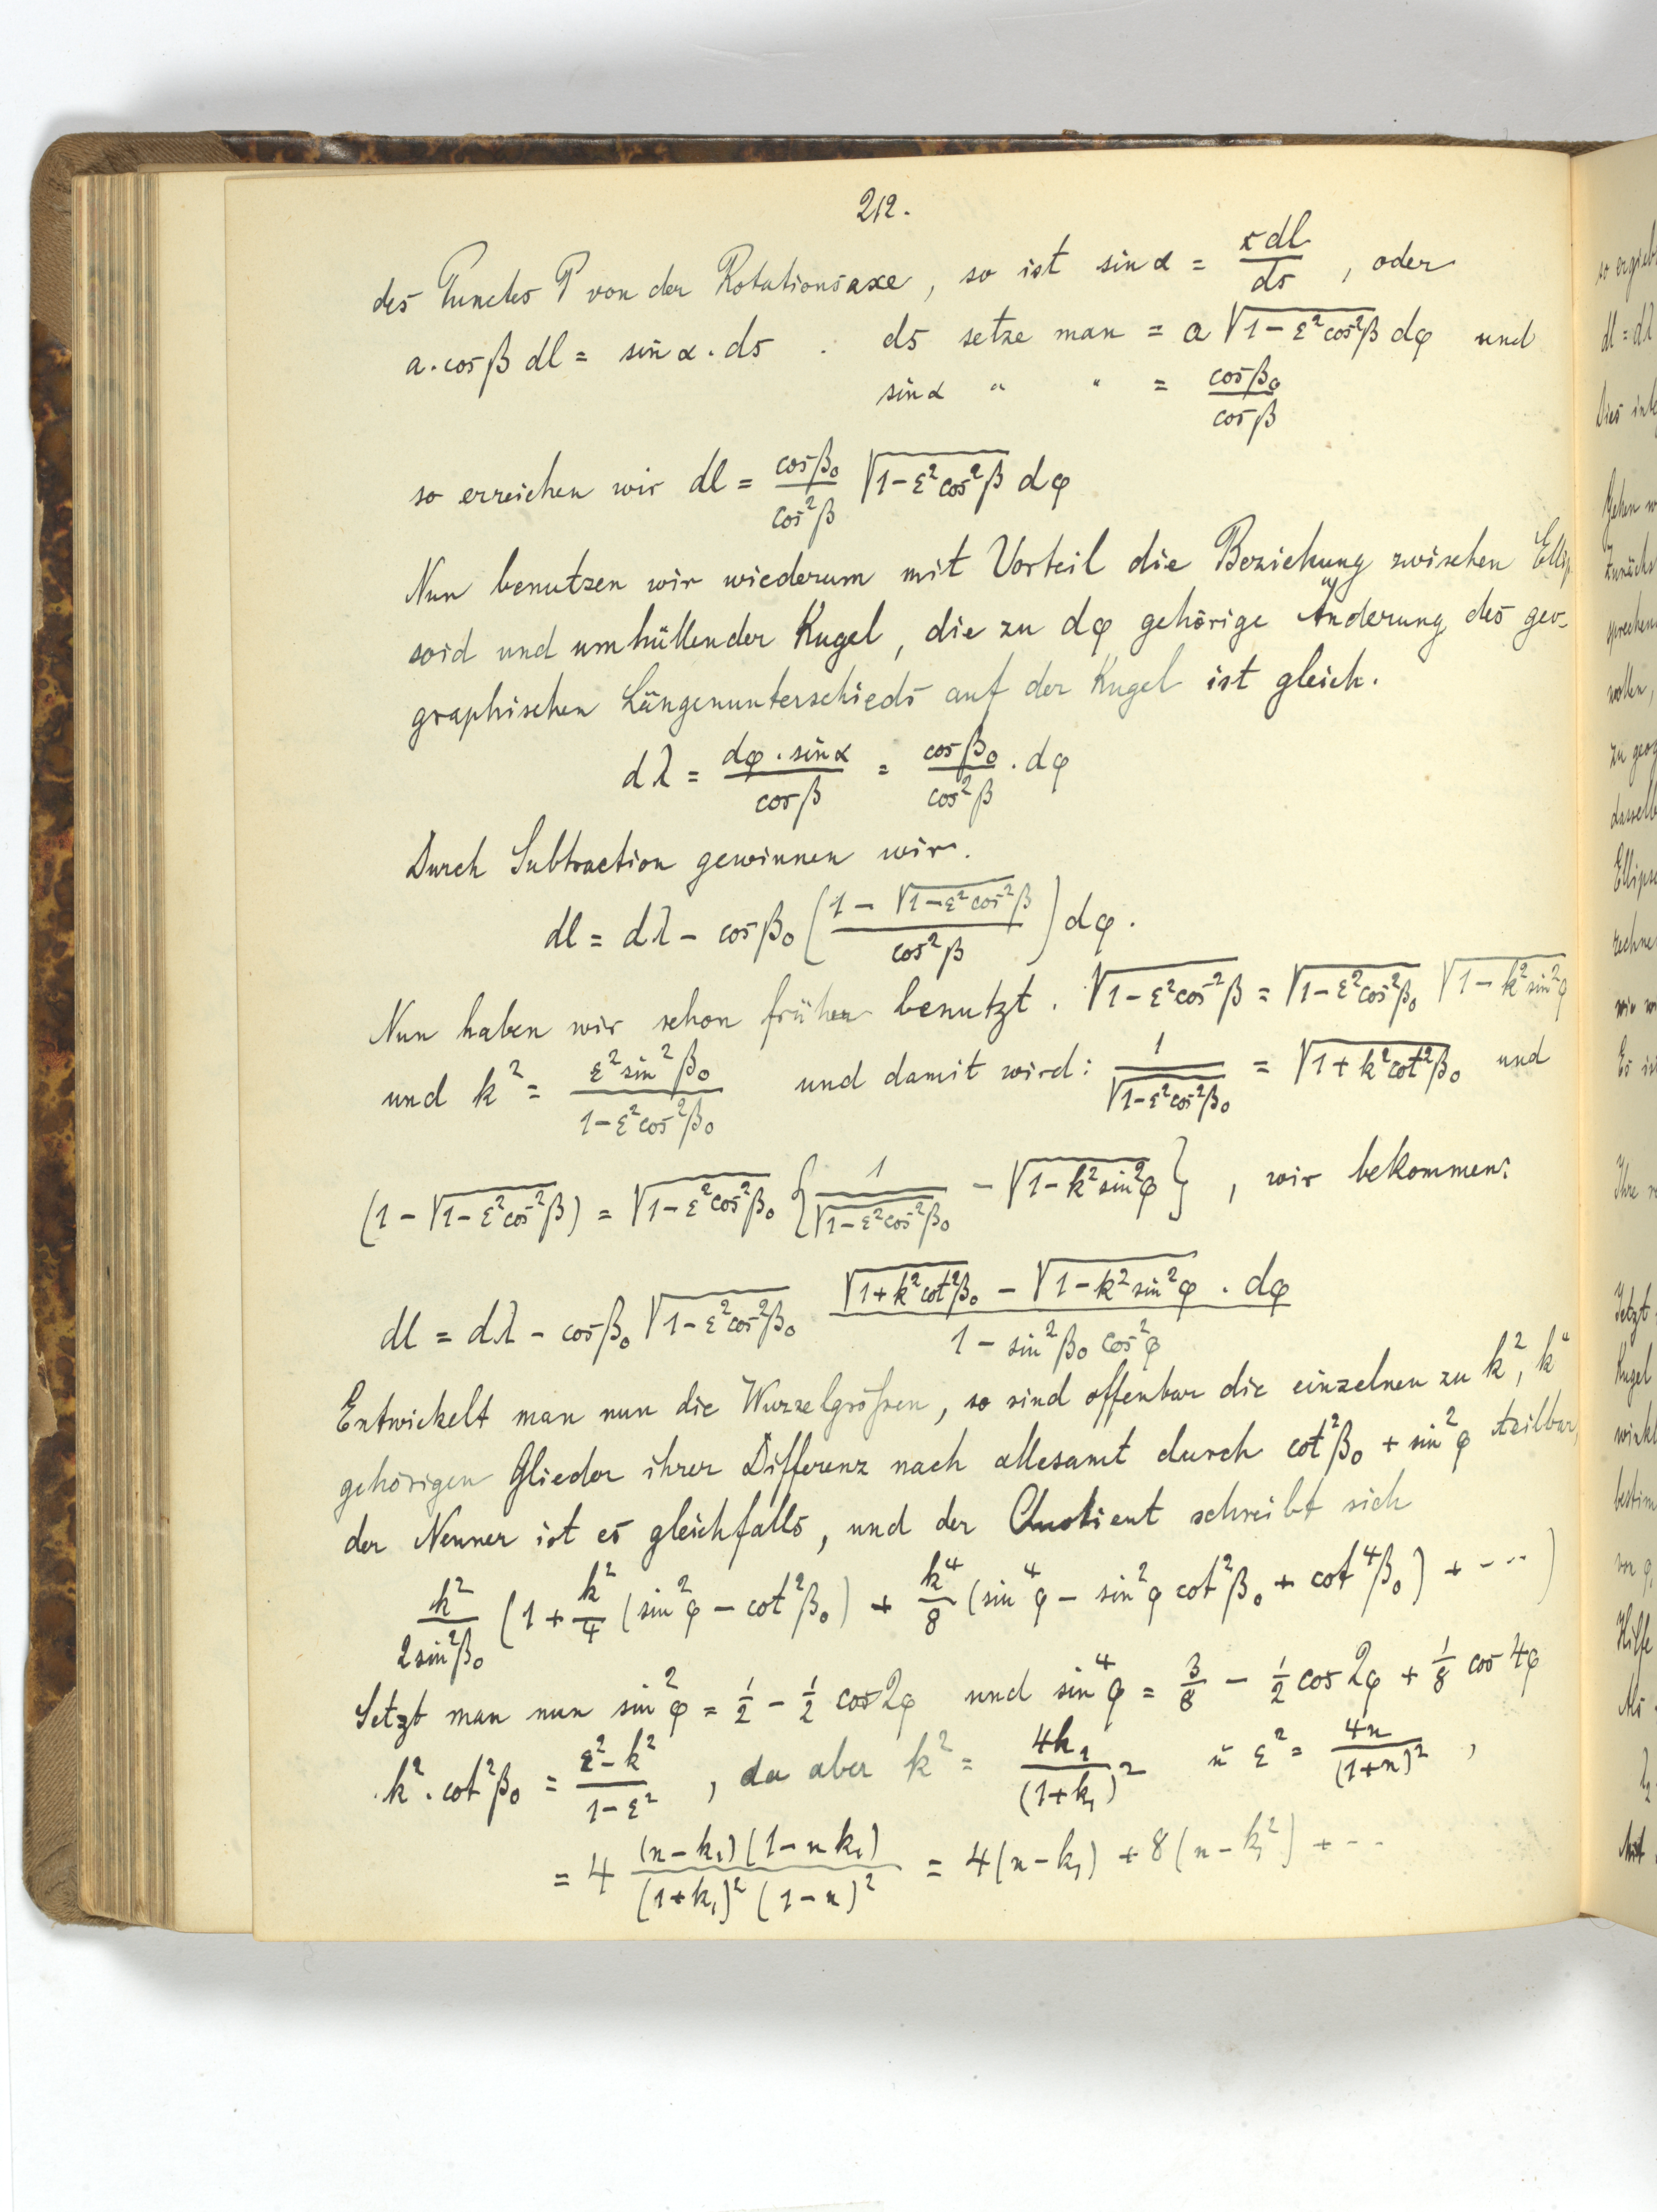 212.
des Punctes P von der Rotationsaxe, so ist sin α = r dl / ds , oder
a · cos β dl = sin α · ds . ds setze man = a √(1 − ε² cos² β) dφ und
sin α " " = cos β₀ / cos β
so erreichen wir dl = cos β₀ / cos² β √(1 − ε² cos² β) dφ
Nun benutzen wir wiederum mit Vorteil die Beziehung zwischen Ellip
soid und umhüllender Kugel, die zu dφ gehörige Änderung des geo-
graphischen Längenunterschieds auf der Kugel ist gleich.
dλ = dφ · sin α / cos β = cos β₀ / cos² β · dφ
Durch Subtraction gewinnen wir.
dl = dλ − cos β₀ ( (1 − √(1 − ε² cos² β)) / cos² β ) dφ.
Nun haben wir schon früher benutzt. √(1 − ε² cos² β) = √(1 − ε² cos² β₀) √(1 − k² sin² φ)
und k² = ε² sin² β₀ / (1 − ε² cos² β₀) und damit wird: 1 / √(1 − ε² cos² β₀) = √(1 + k² cot² β₀) und
(1 − √(1 − ε² cos² β)) = √(1 − ε² cos² β₀) { 1 / √(1 − ε² cos² β₀) − √(1 − k² sin² φ) } , wir bekommen:
dl = dλ − cos β₀ √(1 − ε² cos² β₀) (√(1 + k² cot² β₀) − √(1 − k² sin² φ) · dφ) / (1 − sin² β₀ cos² φ)
Entwickelt man nun die Wurzelgrößen, so sind offenbar die einzelnen zu k², k⁴
gehörigen Glieder ihrer Differenz nach allesamt durch cot² β₀ + sin² φ teilbar,
der Nenner ist es gleichfalls, und der Quotient schreibt sich
k² / 2 sin² β₀ (1 + k²/4 (sin² φ − cot² β₀) + k⁴/8 (sin⁴ φ − sin² φ cot² β₀ + cot⁴ β₀) + ···)
Setzt man nun sin² φ = 1/2 − 1/2 cos 2φ und sin⁴ φ = 3/8 − 1/2 cos 2φ + 1/8 cos 4φ
k² · cot² β₀ = (ε² − k²) / (1 − ε²) , da aber k² = 4k₁ / (1 + k₁)² u ε² = 4n / (1 + n)² ,
= 4 (n − k₁)(1 − n k₁) / (1 + k₁)² (1 − n)² = 4(n − k₁) + 8(n − k₁²) + ···
so ergiebt
dl = dλ
Dies
Gehen
Zunächs
sprechen
wollen,
zu geog
dasselb
Ellips
rechne
wir
Es ist
Ihre
Jetzt
Kugel
winkl
bestim
von φ,
Hilfe
Als